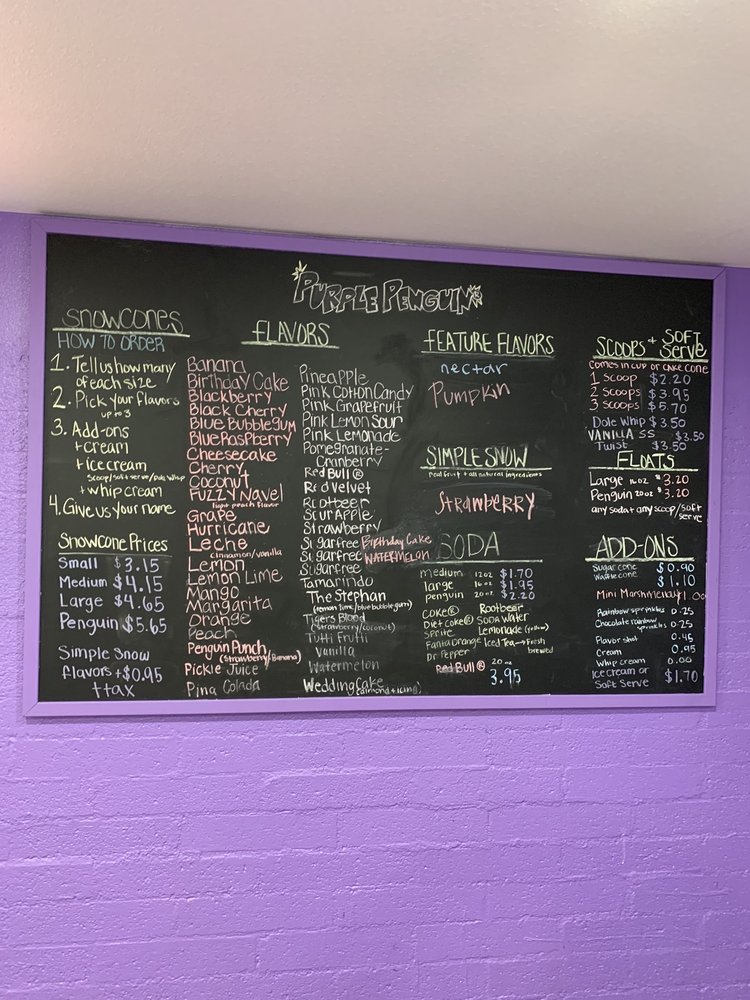 PURPLE PENGUIN
SNOWCONES
HOW TO ORDER
1. Tell us how many
of each size
2. Pick your flavors
up to 3
3. Add-ons
+ cream
+ ice cream
scoop/soft serve/Dole Whip
+ whip cream
4. Give us your name
Snowcone Prices
Small $3.15
Medium $4.15
Large $4.65
Penguin $5.65
Simple Snow
flavors +$0.95
+tax
FLAVORS
Banana
Birthday Cake
Blackberry
Black Cherry
Blue Bubblegum
Blue Raspberry
Cheesecake
Cherry
Coconut
Fuzzy Navel
light peach flavor
Grape
Hurricane
Leche
cinnamon/vanilla
Lemon
Lemon Lime
Mango
Margarita
Orange
Peach
Penguin Punch
(Strawberry/Banana)
Pickle Juice
Pina Colada
Pineapple
Pink Cotton Candy
Pink Grapefruit
Pink Lemon Sour
Pink Lemonade
Pomegranate-
Cranberry
Red Bull®
Red Velvet
Rootbeer
Sour Apple
Strawberry
Sugarfree Birthday Cake
Sugarfree WATERMELON
Sugarfree
Tamarindo
The Stephan
(lemon lime/blue bubblegum)
Tigers Blood
(strawberry/coconut)
Tutti Frutti
Vanilla
Watermelon
Wedding Cake
(almond + icing)
FEATURE FLAVORS
nectar
Pumpkin
SIMPLE SNOW
real fruit + all natural ingredients
Strawberry
SODA
medium 12oz $1.70
large 16oz $1.95
penguin 20oz $2.20
Coke® Rootbeer
Diet Coke® Soda Water
Sprite Lemonade (yellow)
Fanta Orange Iced Tea→Fresh
brewed
Dr Pepper
Red Bull® 20oz
3.95
SCOOPS + SOFT
Serve
Comes in cup or cake cone
1 Scoop $2.20
2 Scoops $3.95
3 Scoops $5.70
Dole Whip $3.50
VANILLA SS $3.50
Twist $3.50
FLOATS
Large 16oz $3.20
Penguin 20oz $3.20
any soda + any scoop/soft
serve
ADD-ONS
Sugar cone $0.90
Waffle cone $1.10
Mini Marshmellow 1.00
Rainbow sprinkles 0.25
Chocolate rainbow
sprinkles 0.25
Flavor shot 0.45
Cream 0.95
Whip cream 0.00
Ice cream or
Soft Serve $1.70